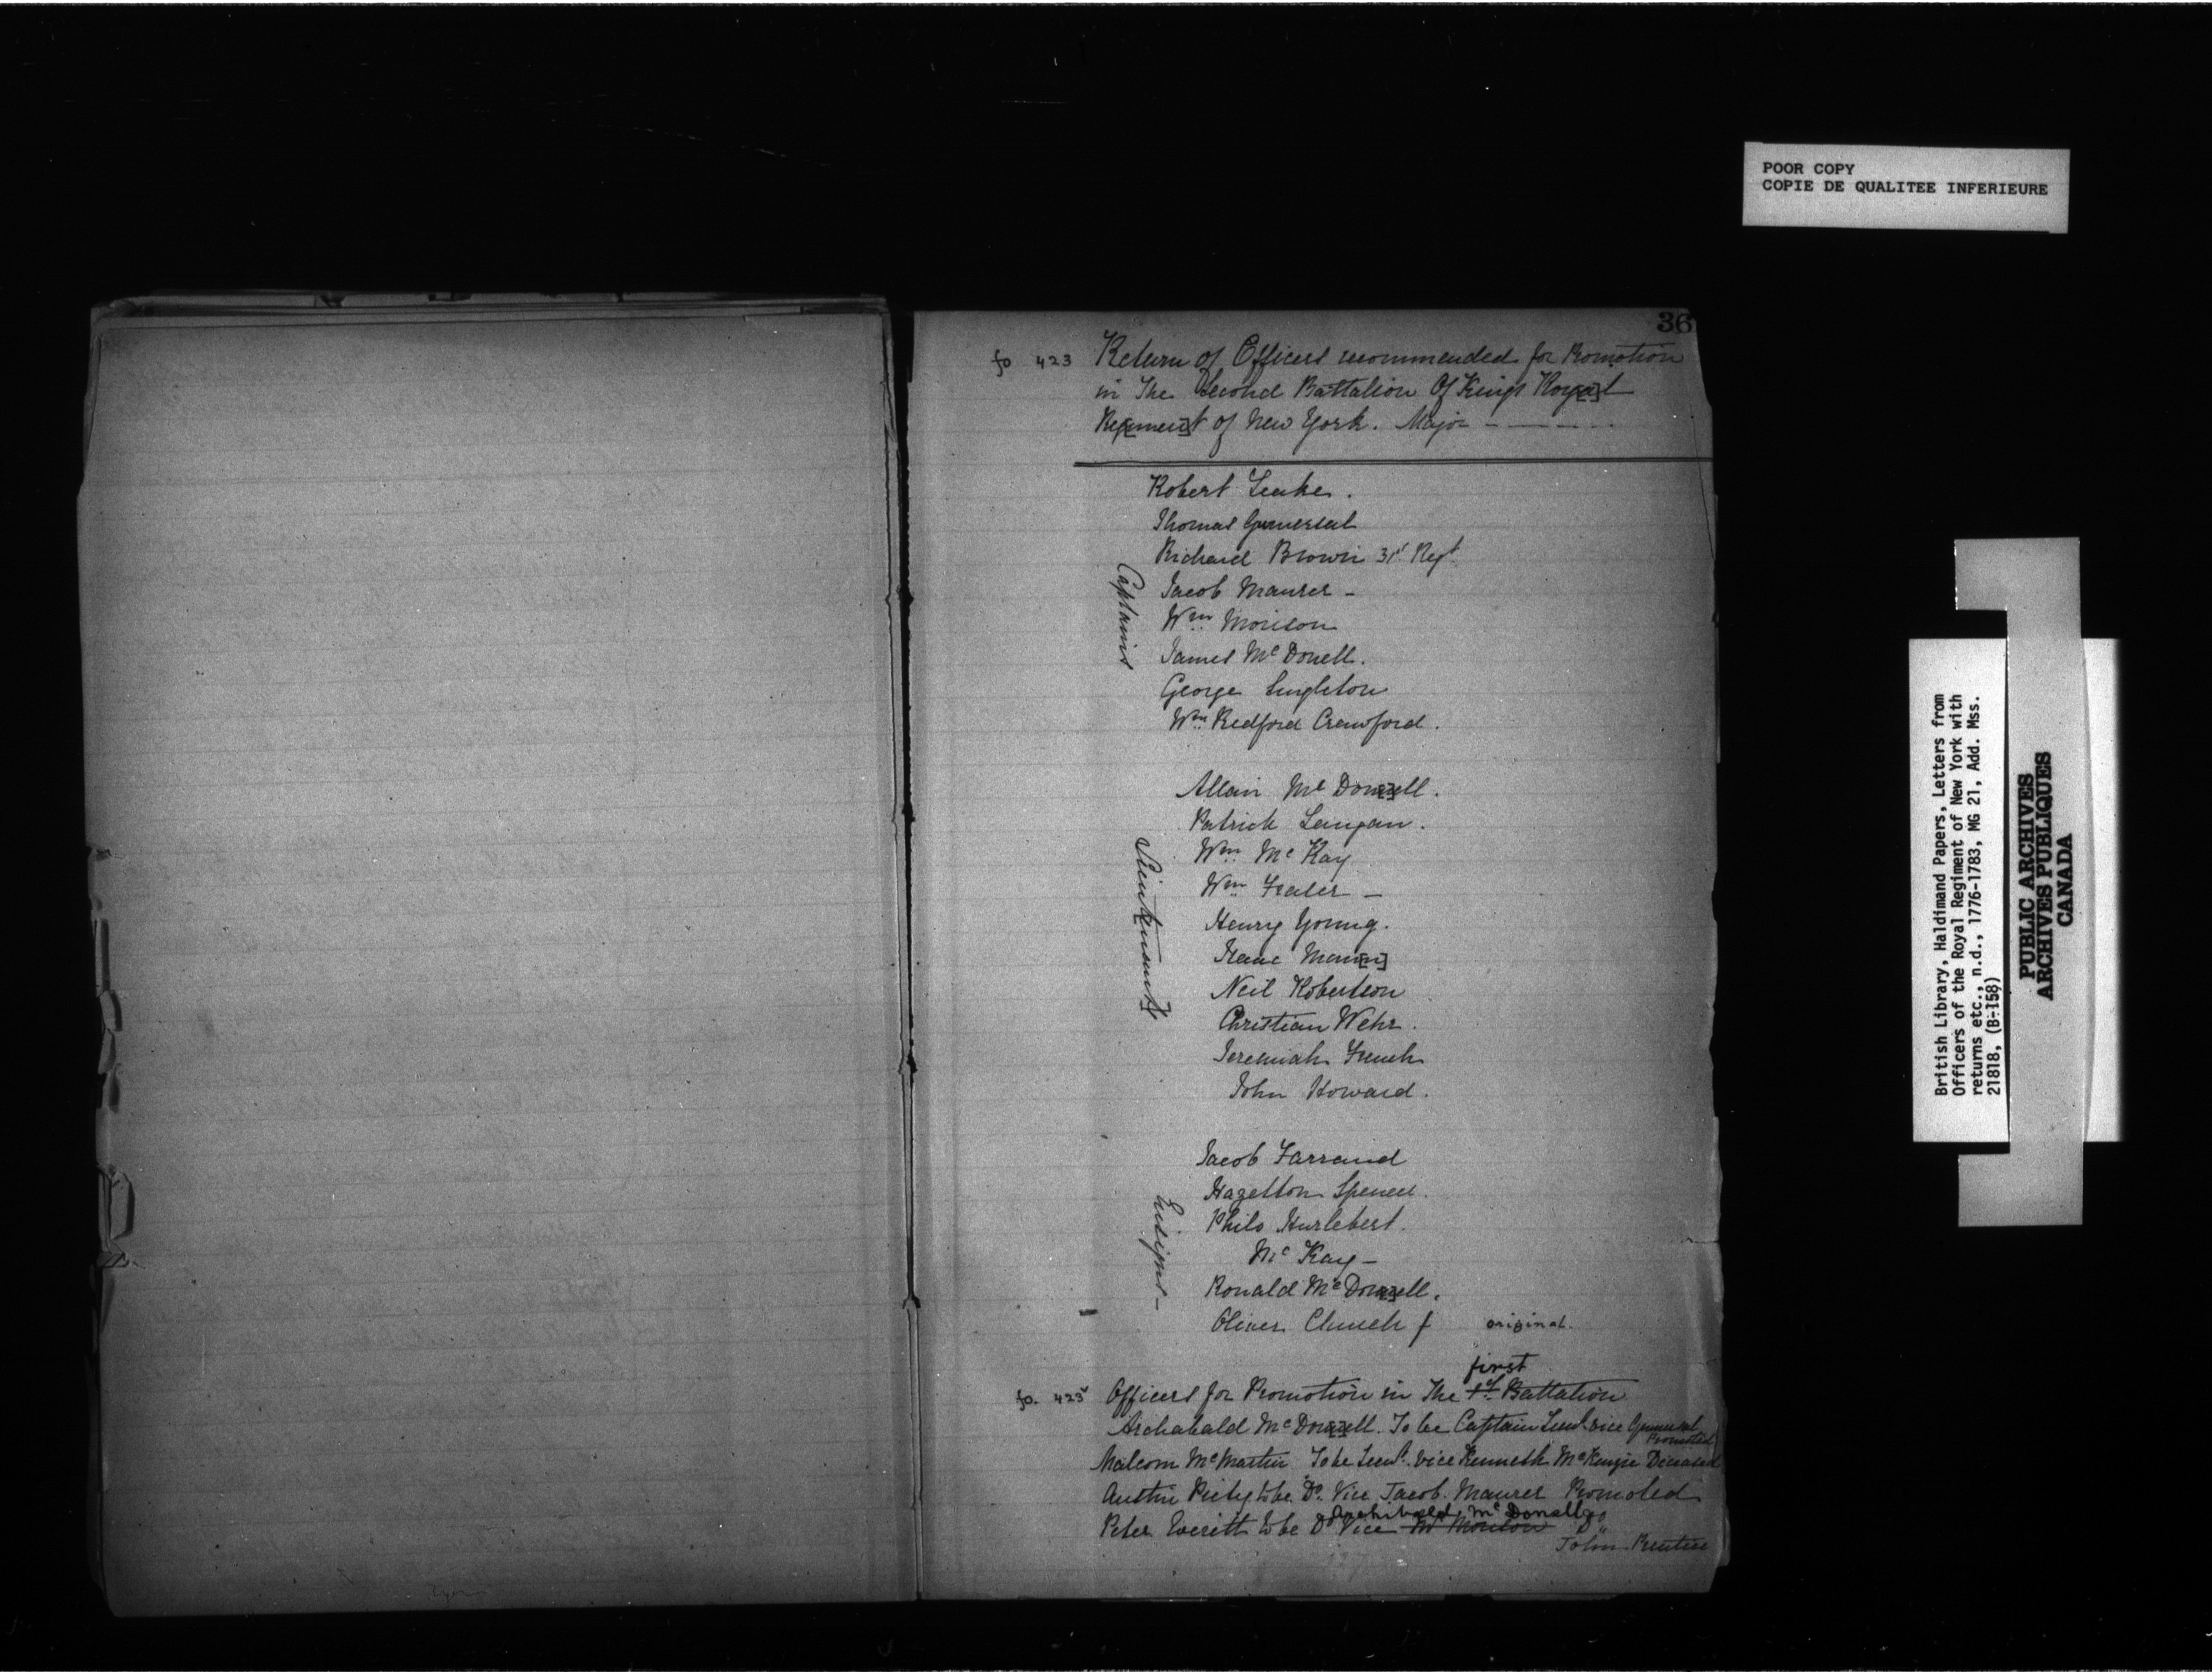 POOR COPY
COPIE DE QUALITEE INFERIEURE
36
fo 423 Return of Officers recommended for Promotion
in The Second Battalion Of Kings Roy[a]l
Reg[imen]t of New York. Major - - - - -
Captains
Robert Leake.
Thomas Gumersal
Richard Brown 31st Regt
Jacob Maurer -
Wm Morison
James Mc Donell.
George Singleton
Wm Redford Crawford.
Lieut[enants]
Allan Mc Don[n]ell.
Patrick Langan.
Wm Mc Kay
Wm Fraser -
Henry Young.
Isaac Man[n]
Neil Robertson
Christian Wehr.
Jeremiah French
John Howard.
Ensigns -
Jacob Farrand
Hazelton Spencer.
Philo Hurlebert.
Mc Kay -
Ronald Mc Don[n]ell.
Oliver Church
original.
first
fo. 423v Officers for Promotion in The 1st Battalion
Archabald Mc Don[n]ell. To be Captain Lieut. vice Gumersal
Promoted
Malcom McMartin To be Lieut. vice Kenneth McKenzie Deceased
Austin Piety to be Do. Vice Jacob Maurer Promoted
Archibald Mc Donell
Peter Everitt to be Do Vice Morison Do
John Prentice
British Library, Haldimand Papers, Letters from
Officers of the Royal Regiment of New York with
returns etc., n.d., 1776-1783, MG 21, Add. Mss.
21818, (B-158)
PUBLIC ARCHIVES
ARCHIVES PUBLIQUES
CANADA